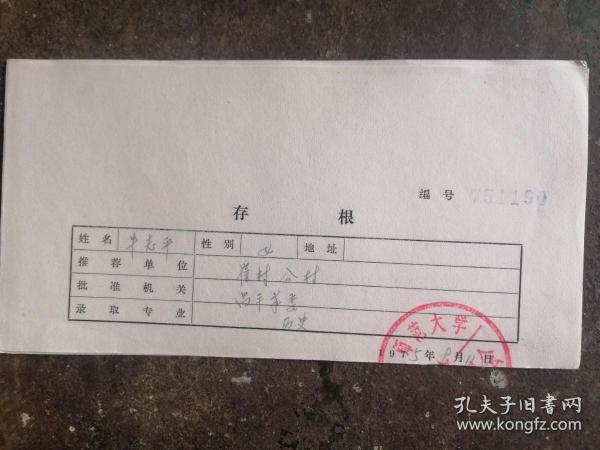 编号 751190
存根
姓名 牛志平 性别 女 地址
推荐单位 崔村公村
批准机关 昌平革委
录取专业 历史
师范大学
1975年9月 日
孔夫子旧书网
www.kongfz.com